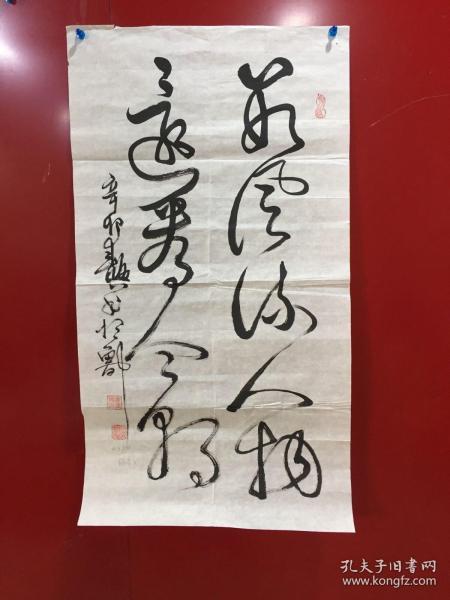 数风流人物
还看今朝
辛卯春
孔夫子旧书网
www.kongfz.com